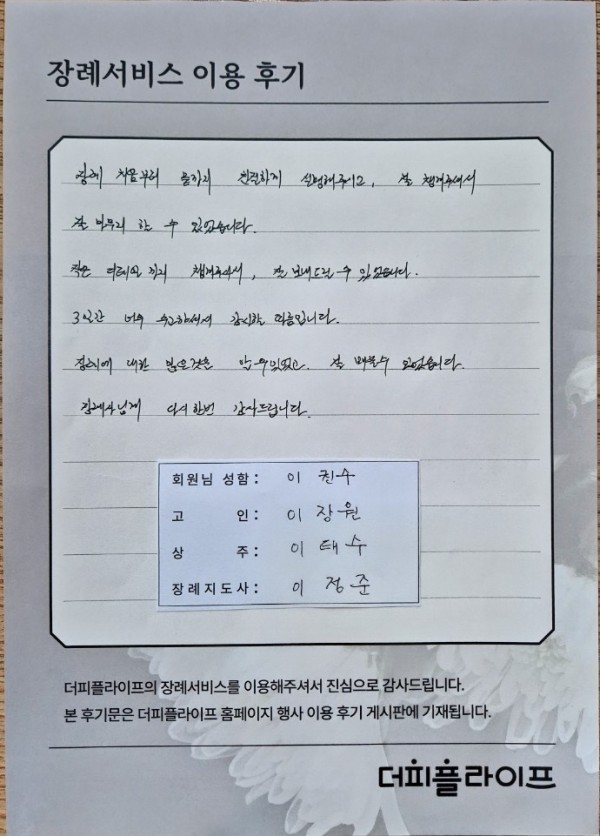 장례서비스 이용 후기
장례 처음부터 끝까지 친절하게 설명해주시고, 잘 챙겨주셔서
잘 마무리 할 수 있었습니다.
작은 디테일 까지 챙겨주셔서, 잘 보내드릴 수 있었습니다.
3일간 너무 수고하셔서 감사할 따름입니다.
장례에 대한 많은것을 알 수 있었고, 잘 배울수 있었습니다.
장례사님께 다시한번 감사드립니다.
회원님 성함: 이 권수
고 인: 이 장원
상 주: 이 태수
장례지도사: 이 정준
더피플라이프의 장례서비스를 이용해주셔서 진심으로 감사드립니다.
본 후기문은 더피플라이프 홈페이지 행사 이용 후기 게시판에 기재됩니다.
더피플라이프